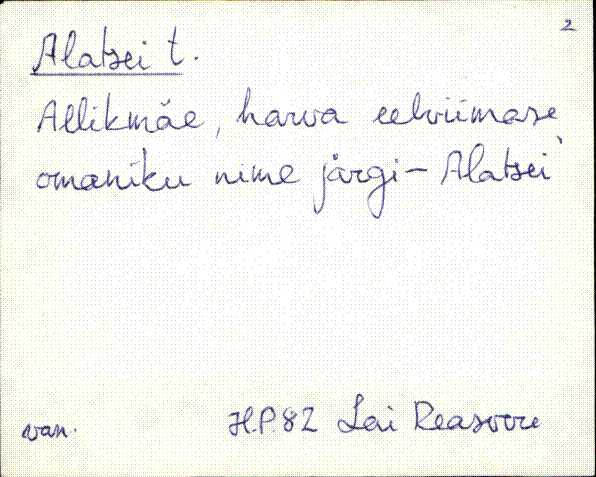 2
Alatsei t.
Allikmäe, harva eelviimase
omaniku nime järgi – Alatsei`
van.
H.P.82 Lai Reasvere